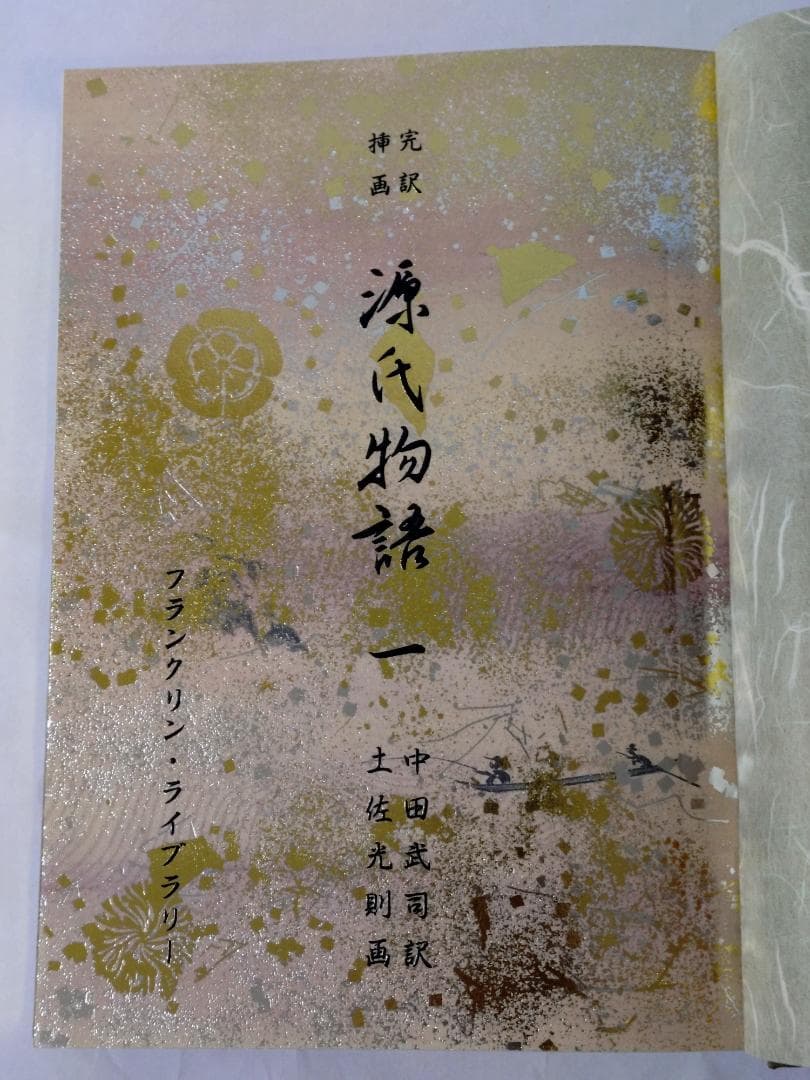 完訳
挿画
源氏物語 一
中田武司訳
土佐光則画
フランクリン・ライブラリー